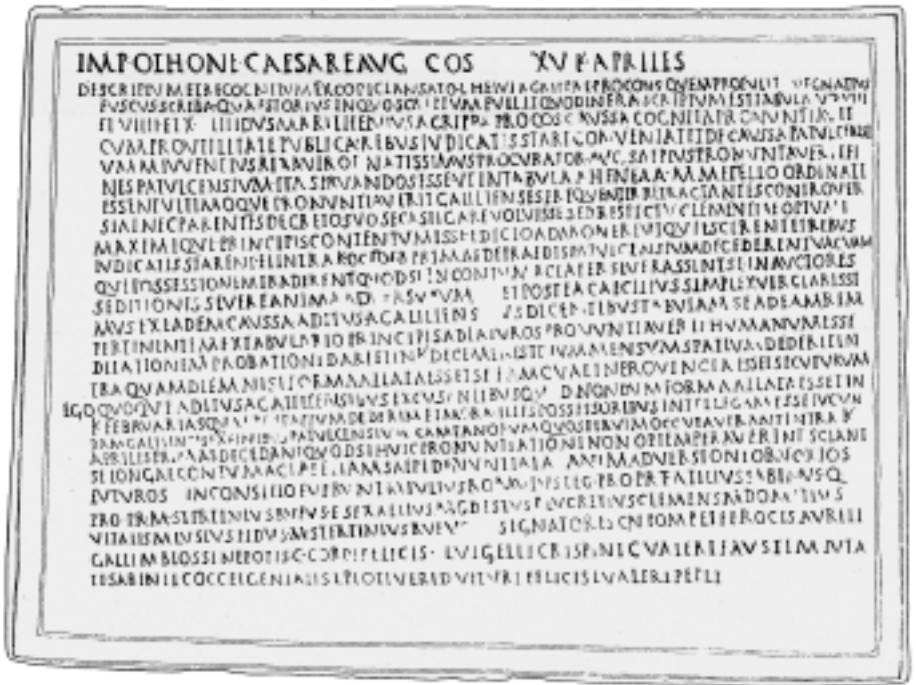 IMP OTHONE CAESARE AVG COS XV K APRILES
DESCRIPTVM ET RECOGNITVM EX CODICE ANSATO L HELVI AGRIPPAE PROCONS QVEM PROTVLIT EGNATIVS
FVSCVS SCRIBA QVAESTORIVS IN QVO SCRIPTVM QVOD INFRA SCRIPTVM EST TABVLA
ET VIIII ET X IDVS AGRIPPA PROCOS CAVSSA COGNITA PRONVNTIAVIT
CVM PRO VTILITATE PVBLICA REBVS IVDICATIS STARI CONVENIAT ET DE CAVSSA PATVLCENSI
VM M IVVENTIVS RIXA VIR ORNATISSIMVS PROCVRATOR AVG SAEPIVS PRONVNTIAVERIT FI
NES PATVLCENSIVM ITA SERVANDOS ESSE VT IN TABVLA AHENEA A M METELLO ORDINATI
ESSENT VLTIMOQVE PRONVNTIAVERIT GALILLENSES FREQVENTER RETRACTANTES CONTROVER
SIAM NEC PARENTES DECRETO SVO SE CASTIGARE VOLVISSE SED RESPECTV CLEMENTIAE OPTVMI
MAXIMIQVE PRINCIPIS CONTENTVM ESSE EDICTO ADMONERE VT QVIESCERENT ET REBVS
IVDICATIS STARENT ET INTRA K OCTOBR PRIMAS DE PRAEDIS PATVLCENSIVM DECEDERENT VACVAM
QVE POSSESSIONEM TRADERENT QVODSI IN CONTVMACIA PERSEVERASSENT SE IN AVCTORES
SEDITIONIS SEVERE ANIMADVERSVRVM ET POSTEA CAECILIVS SIMPLEX VIR CLARISSI
MVS EX EADEM CAVSSA ADITVS A GALILLENSIBVS DICENTIBVS TABVLAM SE AD EAM REM
PERTINENTEM EX TABVLARIO PRINCIPIS ADLATVROS PRONVNTIAVERIT HVMANVM ESSE
DILATIONEM PROBATIONI DARI ET IN K DECEMBRES TRIVM MENSVM SPATIVM DEDERIT IN
TRA QVAM DIEM NISI FORMA ALLATA ESSET SE EAM QVAE IN PROVINCIA ESSET SECVTVRVM
EGO QVOQVE ADITVS A GALILLENSIBVS EXCVSANTIBVS QVOD NONDVM FORMA ALLATA ESSET IN
K FEBRVARIAS SPATIVM DEDERIM ET MORA ILLIS POSSESSORIBVS INTELLIGAM ESSE IVCVN
DAM GALILLENSES EX FINIBVS PATVLCENSIVM CAMPANORVM QVOS PER VIM OCCVPAVERANT INTRA K
APRILES PRIMAS DECEDANT QVODSI HVIC PRONVNTIATIONI NON OPTEMPERAVERINT SCIANT
SE LONGAE CONTVMACIAE ET IAM SAEPE DENVNTIATA ANIMADVERSIONI OBNOXIOS
FVTVROS IN CONSILIO FVERVNT M IVLIVS ROMVLVS LEG PRO PR T ATILIVS SABINVS Q
PRO PR M STERTINIVS RVFVS F SEX AELIVS MODESTVS P LVCRETIVS CLEMENS M DOMITIVS
VITALIS M LVSIVS FIDVS M STERTINIVS RVFVS SIGNATORES CN POMPEI FEROCIS AVRELI
GALLI M BLOSSI NEPOTIS C CORDI FELICIS L VIGELLI CRISPINI C VALERI FAVSTI M LVTA
TI SABINI L COCCEI GENIALIS L PLOTI VERI D VETVRI FELICIS L VALERI PEPLI